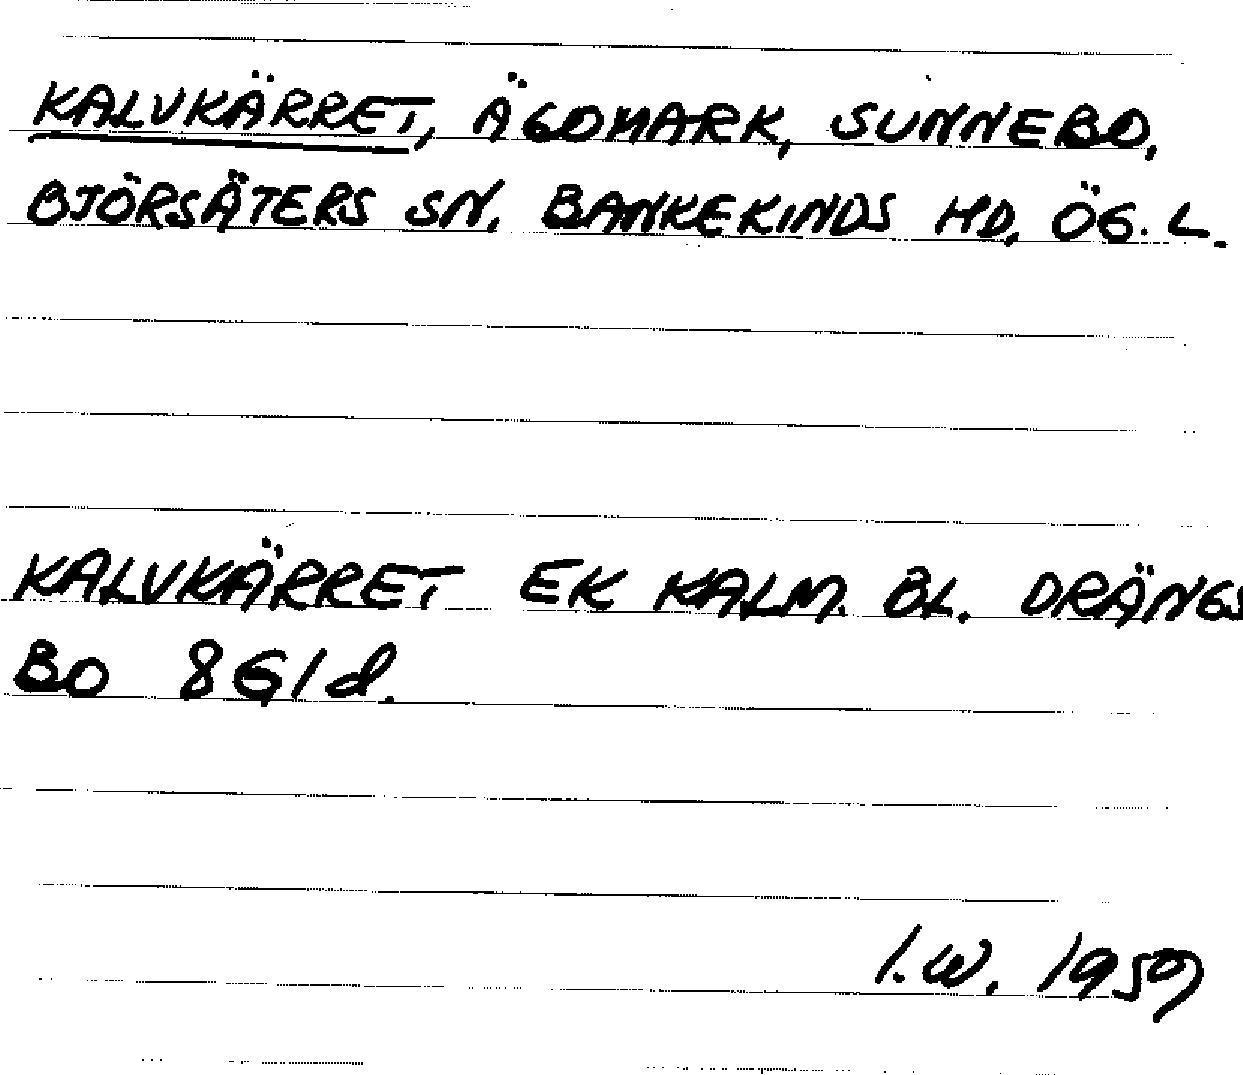 KALVKÄRRET, ÄGOMARK, SUNNEBO,
BJÖRSÄTERS SN. BANKEKINDS HD, ÖG. L.
KALVKÄRRET EK KALM. BL. DRÄNGS
BO 8G1d.
I.W. 1959